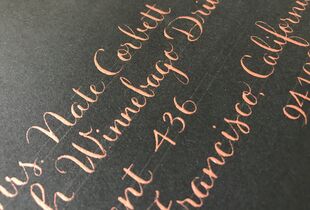 Mrs. Nate Corbett
Winnebago Drive
436
Francisco, California
941